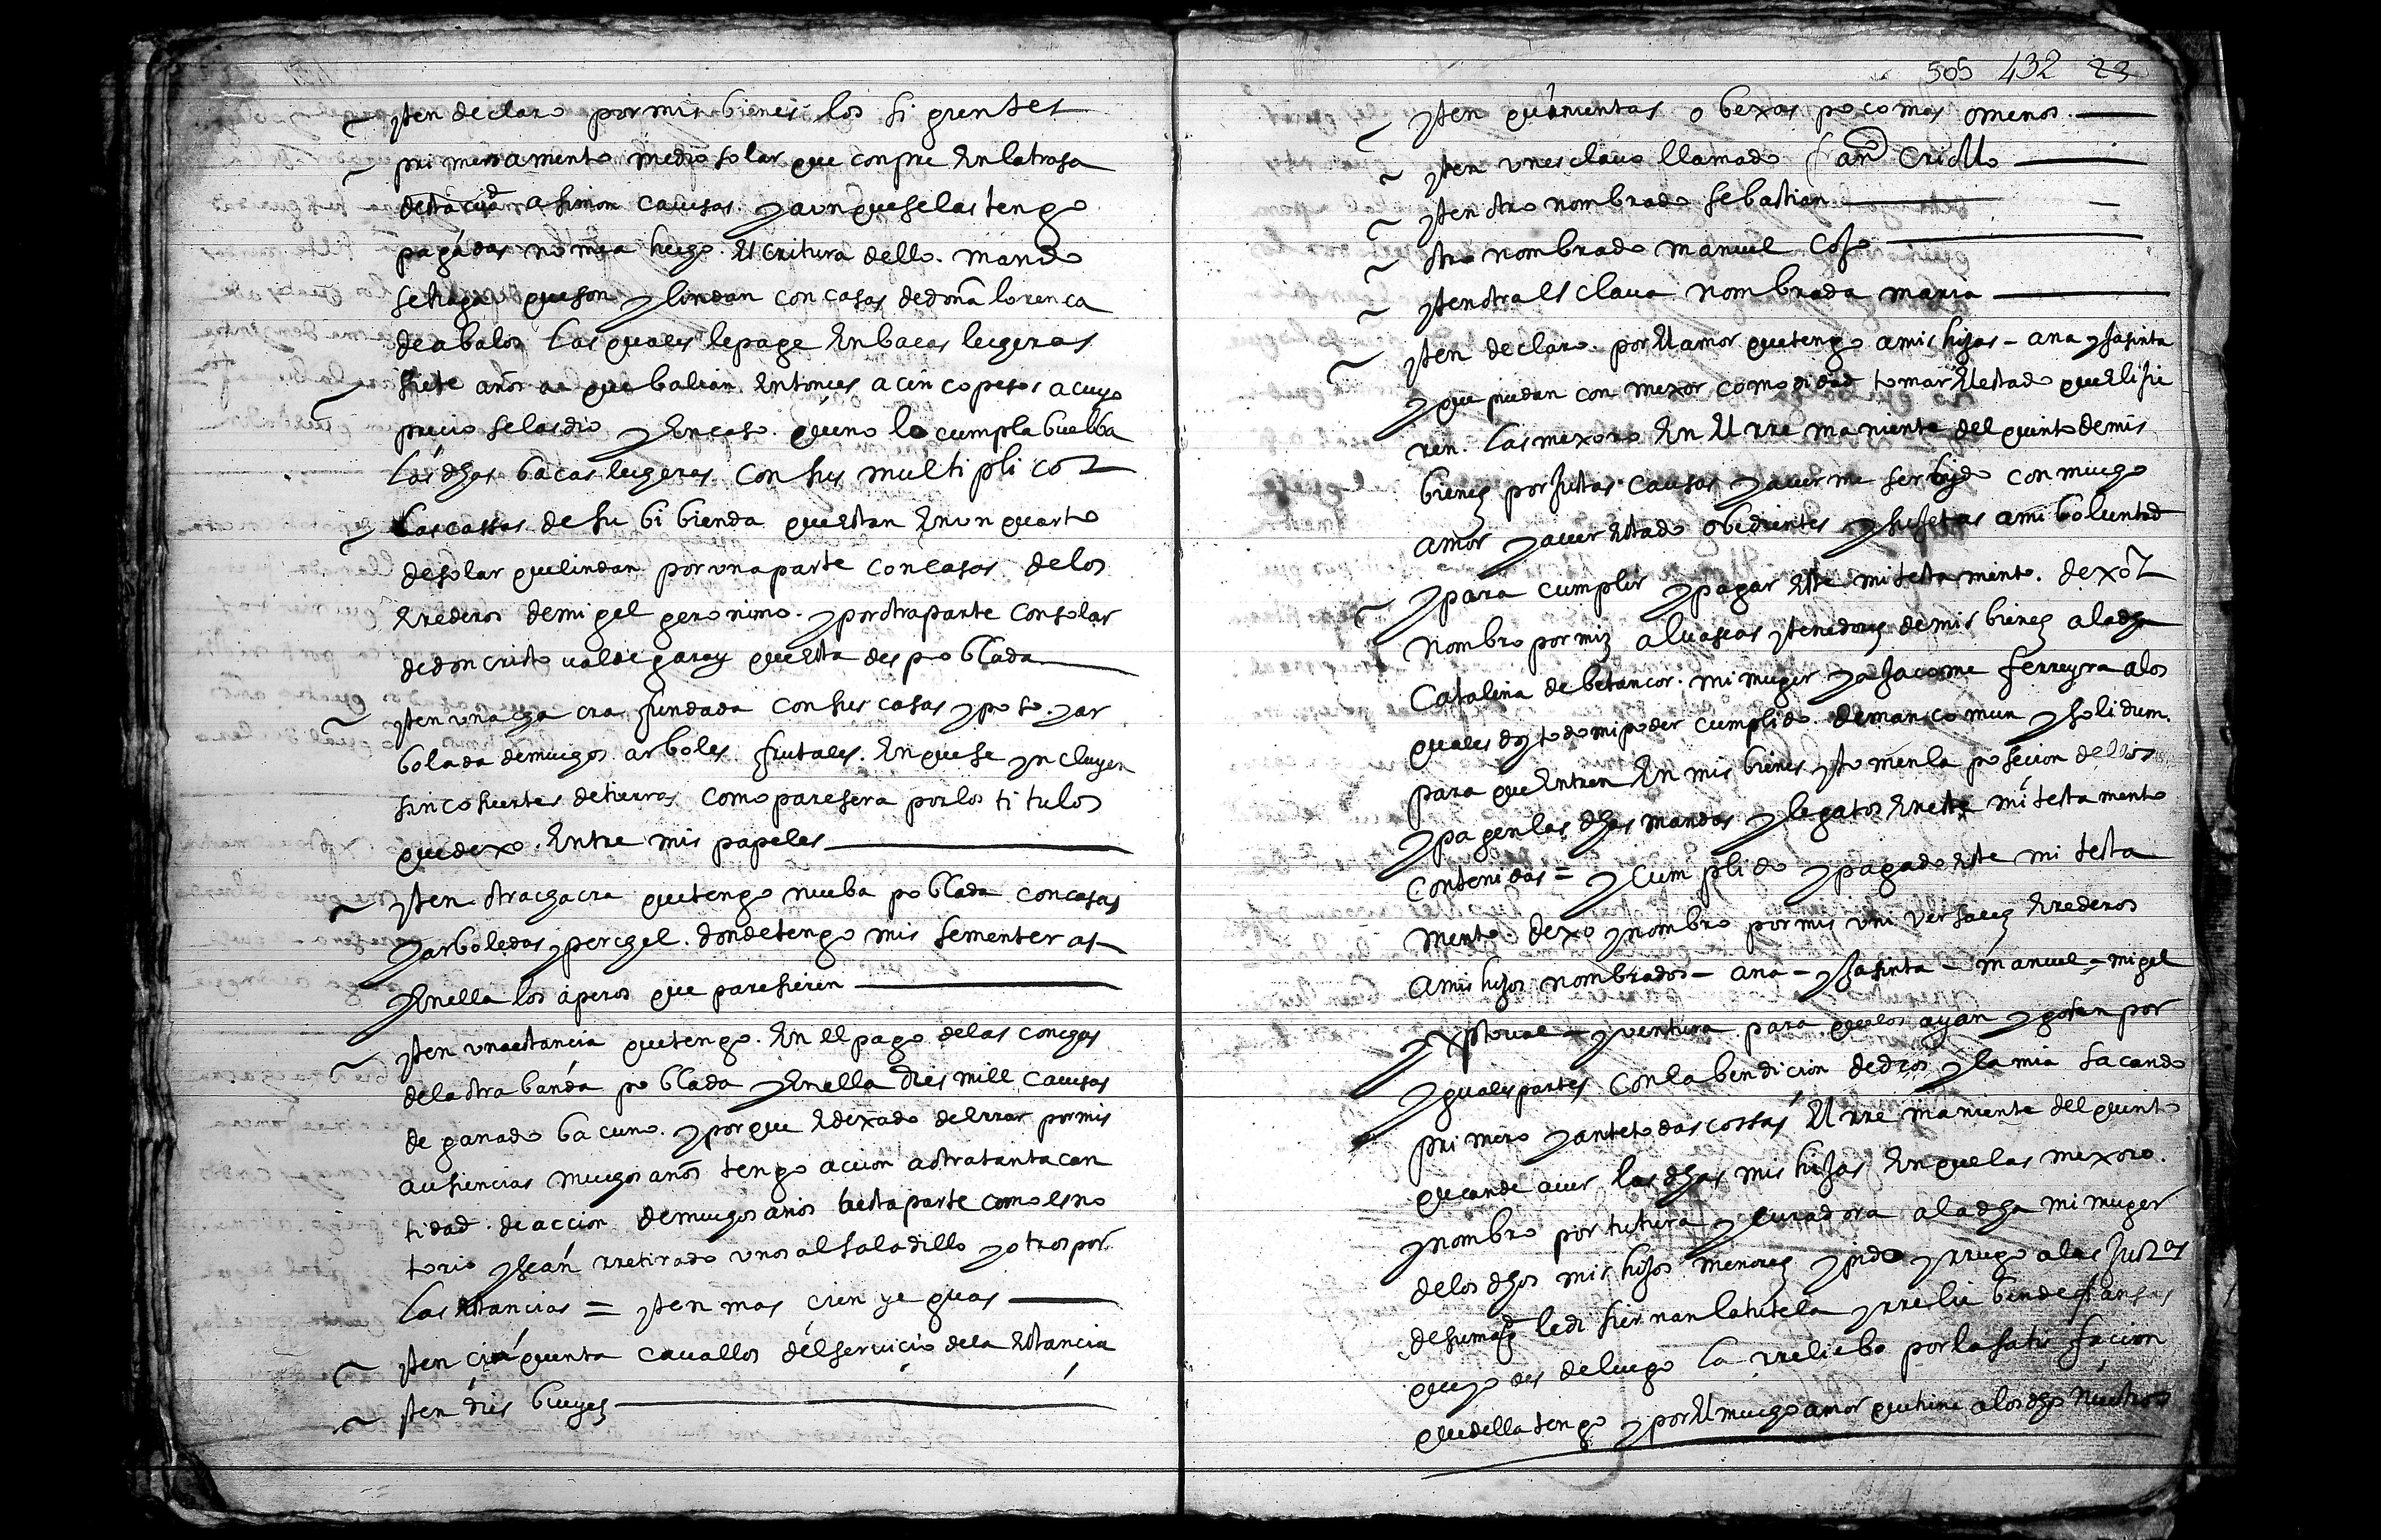 yten declaro por mis bienes los siguientes
primeramente medio solar que conpre en la trasa
desta ciud a simon causas y aunque se las tengo
pagadas no me a hecho escritura dello mando
se haga que son y lindan con casas de doña lorenca
de abalos las quales le page en bacas lecheras
siete años a que balian entonces a cinco pesos a cuyo
precio se las dio y en caso que no lo cumpla buelba
las dhas bacas lecheras con sus multiplicos
las cassas de su bibienda que estan en un quarto
de solar que lindan por una parte con casas de los
erederos de migel geronimo y por otra parte con solar
de don cristoual de garay que esta despoblada
yten una chacra fundada con sus casas y poso y ar
bolada de muchos arboles frutales en que se yncluyen
sinco suertes de tierras como paresera por los titulos
que dexo entre mis papeles
yten otra chacra que tengo nueba poblada con casas
y arboledas y perchel donde tengo mis sementeras
y en ella los aperos que paresieren
yten una estancia que tengo en el pago de las conchas
de la otra banda poblada y en ella dies mill causas
de ganado bacuno y porque e dexado de errar por mis
ausiencias muchos años tengo accion a otra tanta can
tidad de accion de muchos años a esta parte como es no
torio y sean rretirado unos al saladillo y otros por
las estancias = yten mas cien yeguas
yten cinquenta cauallos del seruicio de la estancia
yten dies bueyes
505 432 23
yten quinientas obexas poco mas o menos
yten un esclauo llamado Juan criollo
yten otro nombrado sebastian
otro nombrado manuel
yten otra esclaua nombrada maria
yten declaro por el amor que tengo a mis hijas - ana y jasinta
y que puedan con mexor comodidad tomar el estado que elijie
ren las mexoro en el rremaniente del quinto de mis
bienes por justas causas y auerme serbido con mucho
amor y auer estado obedientes y sujetas a mi boluntad
y para cumplir y pagar este mi testamento dexo y
nombro por mis aluaseas y tenedores de mis bienes a la dha
Catalina de betancor mi muger y a Jacome ferreyra a los
quales doy todo mi poder cumplido de mancomun y solidum
para que entren en mis bienes y tomen la posecion dellos
y pagen las dhas mandas y legatos en este mi testamento
contenidas = y cumplido y pagado este mi testa
mento dexo y nombro por mis universales erederos
a mis hijos nombrados - ana - y jasinta - manuel - migel
xptoual - y ventura para que los ayan y gosen por
yguales partes con la bendicion de dios y la mia sacando
primero y ante todas cossas el rremaniente del quinto
que an de auer las dhas mis hijas en que las mexoro
y nombro por tutura y curadora a la dha mi muger
de los dhos mis hijos menores y pido y rruego a las Justas
de su magd le disiernan la tutela y rrelieben de fiansas
que yo des de luego la rreliebo por la satisfacion
que della tengo y por el mucho amor que tiene a los dhos nuestros